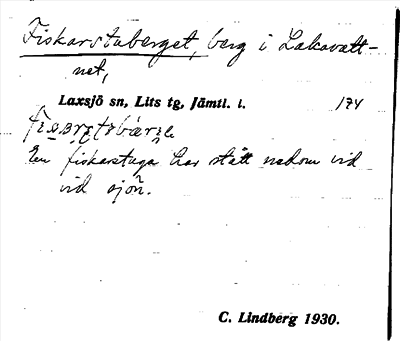 Fiskarstuberget, berg i Laxavatt-
net,
Laxsjö sn, Lits tg, Jämtl. l. 174
En fiskarstuga har stått nedom vid
vid sjön.
C. Lindberg 1930.